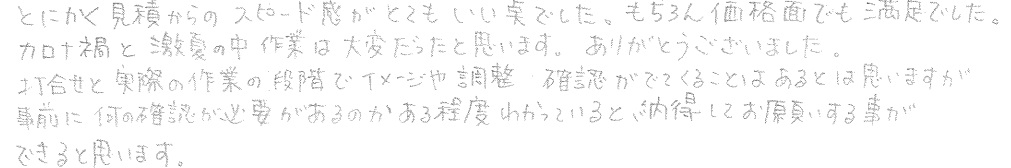 とにかく見積からのスピード感がとてもいい点でした。もちろん価格面でも満足でした。
カロナ禍と激夏の中作業は大変だったと思います。ありがとうございました。
打合せと実際の作業の段階でイメージや調整 確認がでてくることはあるとは思いますが
事前に何の確認が必要があるのかある程度わかっていると、納得してお願いする事が
できると思います。